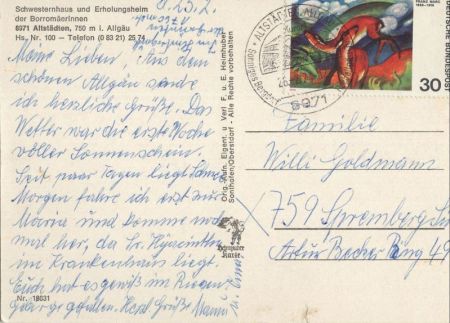 Schwesternhaus und Erholungsheim
der Borromäerinnen
8971 Altstädten, 750 m i. Allgäu
Hs. Nr. 100 – Telefon (0 83 21) 25 74
Meine Lieben, Aus dem
schönen Allgäu sende
ich herzliche Grüße. Das
Wetter war die erste Woche
voller Sonnenschein.
Seit paar Tagen liegt Schnee
Morgen fahre ich erst zur
Maria und komme noch
mal her, da Sr. Hyacinta
im Krankenhaus liegt.
Euch hat es gewiß im Riesen-
gebirge gefallen. Herzl. Grüße
Nr. 18031
Orig. Aufn. Eigent. u. Verl. F. u. E. Heimhuber
Sonthofen/Oberstdorf - Alle Rechte vorbehalten
Heimhuber
Karte
ALTSTÄDTEN, ALLG
8971
FRANZ MARC
DEUTSCHE BUNDESPOST
30
Familie
Willi Goldmann
759 Spremberg
Artur Becker Ring 49